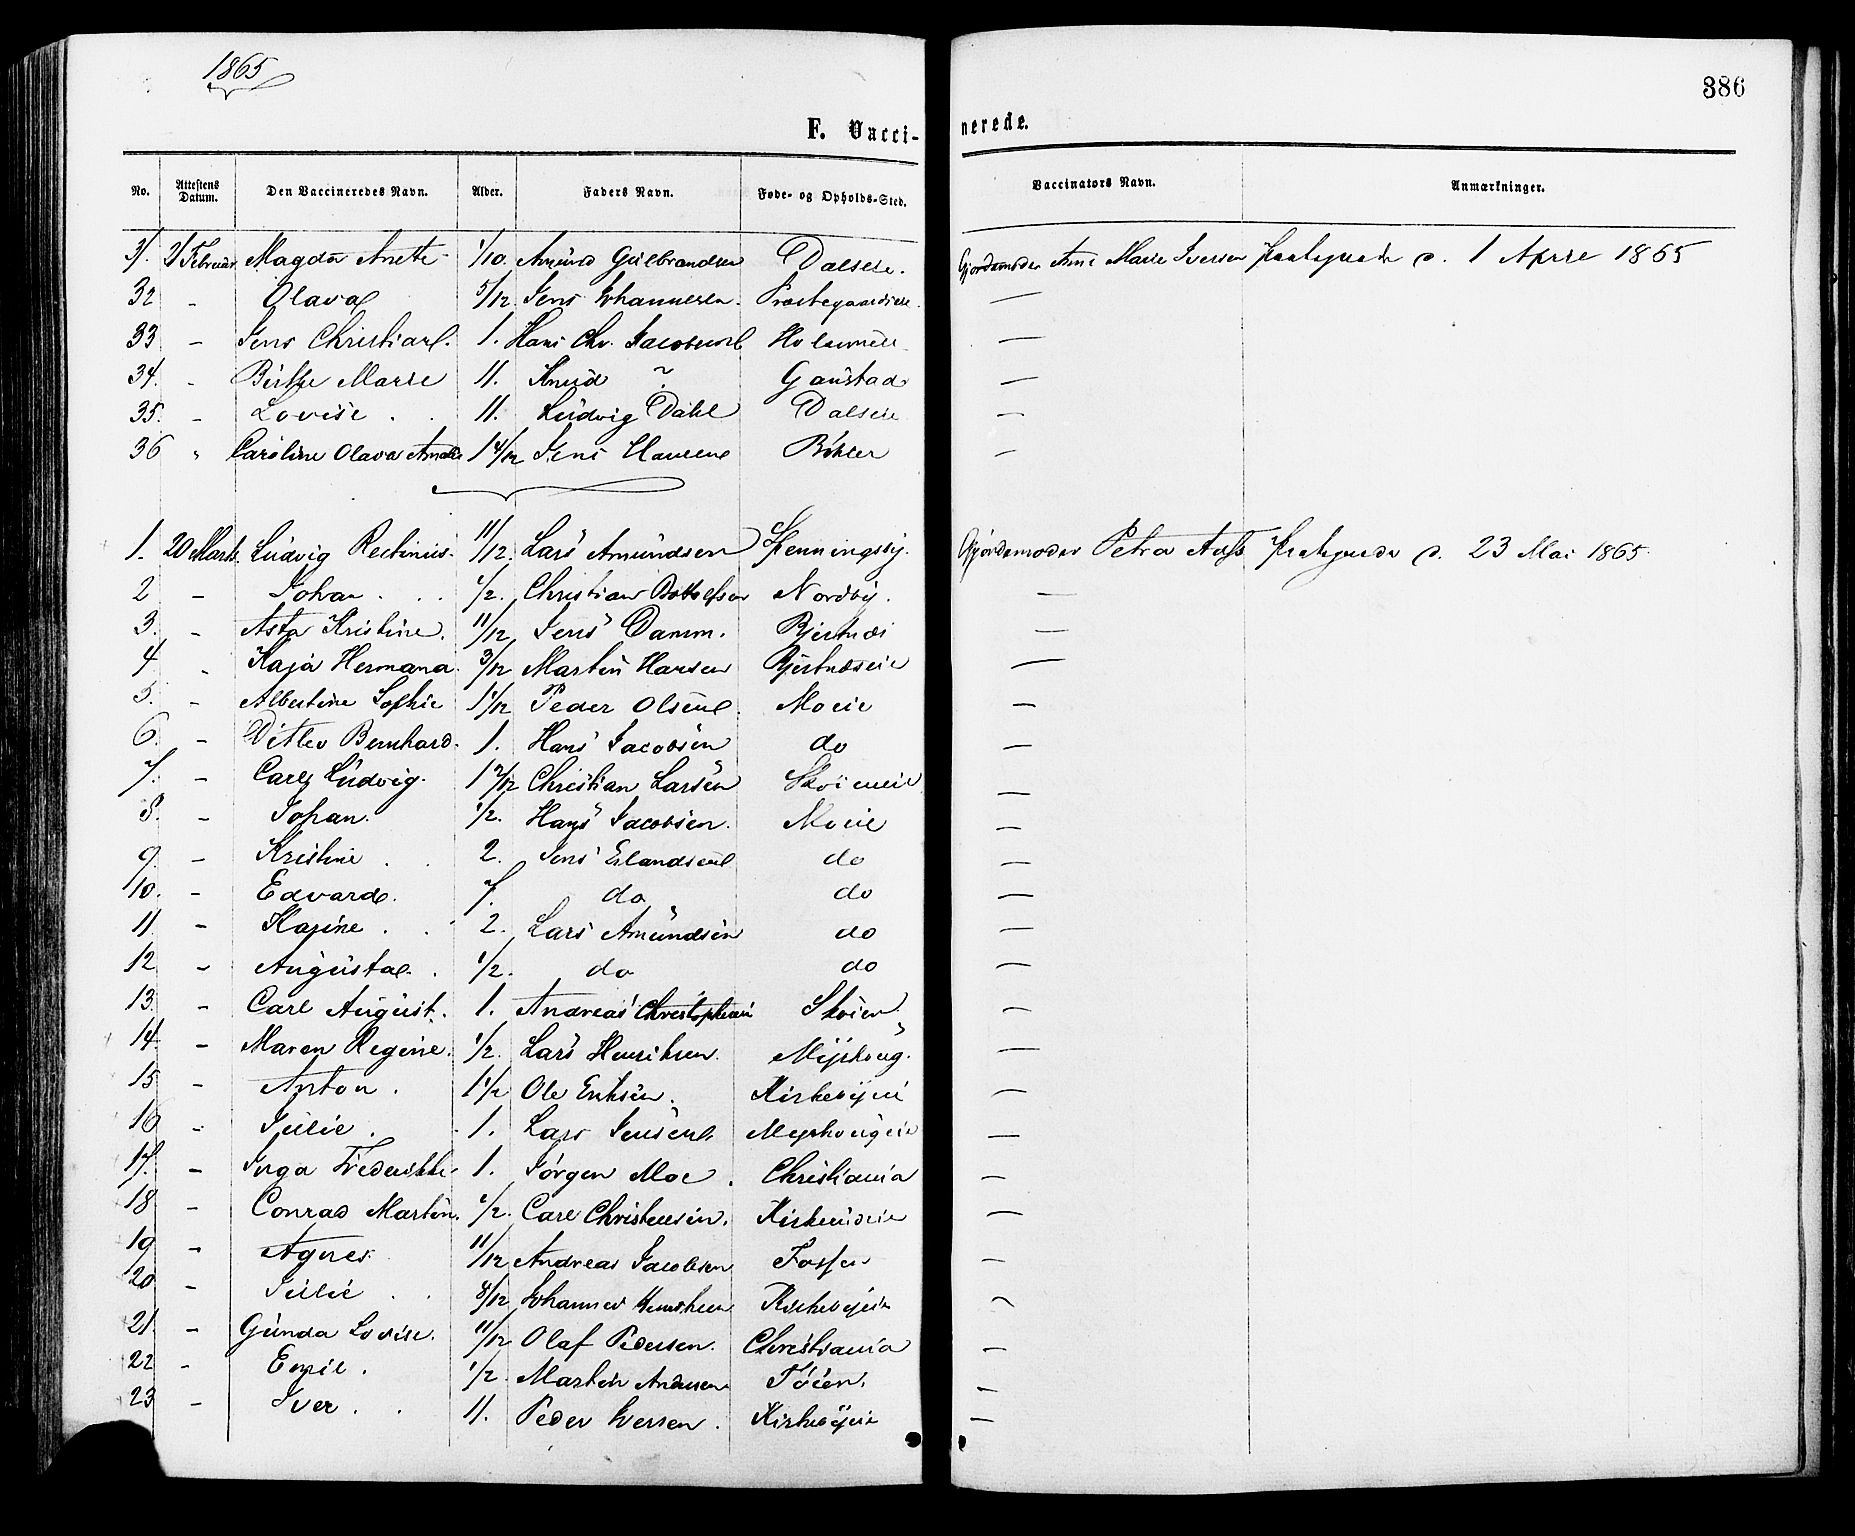 1865
386
F. Vaccinerede.
No. Attestens Datum. Den Vaccineredes Navn. Alder. Faders Navn. Føde- og Opholds-Sted. Vaccinators Navn. Anmærkninger.
31. 21 Februar Magda Anette 1/10 Amund Gulbrandsen Dalseie. Gjordemoder Anne Marie Iversen paategnede d. 1 April 1865
32 - Olava 5/12 Jens Johannesen. Præstegaardseie. —
33 - Jens Christian. 1. Hans Chr. Jacobsen —
34. - Birthe Marie 11. Knud ? Gaustad —
35. - Lovise . . 11. Ludvig Dahl Dalseie —
36 " Caroline Olava Amalie 1 4/12 Jens Hansen Bøhler —
1. 20 Marts. Ludvig Rectinius. 11/12. Lars Amundsen Spenningsby. Gjordemoder Petra paategnede d. 23 Mai 1865.
2 - Johan . . . 1/2. Christian Nordby. —
3. - Asta Kristine. 11/12 Jens Damm. Bjertnæs —
4 - Kaja Hermana. 3/12 Martin Hansen Bjertnæseie —
5. - Albertine Sophie 1 1/12 Peder Olsen. Moeie —
6. - Ditlev Bernhard. 1. Hans Jacobsen do —
7. - Carl Ludvig. Christian Larsen Skøieneie —
8. - Johan. 1/2. Hans Jacobsen. Moeie —
9. - Kristine . . 2. Jens Erlandsen do —
10. - Edvard. 7. do do —
11 - Kajine . . 2. Lars Amundsen do —
12 - Augusta . 1/2. do do —
13. - Carl August. 1. Andreas Christophersen Skøien. —
14. - Maren Regine. 1/2. Lars Henriksen. Myrhoug. —
15 - Anton . 1 1/2 Ole Eriksen. Kirkebyeie —
16 - Julie . . 1. Lars Jensen. Myrhougeie —
17. - Inga Frederikke 1. Jørgen Moe . Christiania —
18 - Conrad Martin. 1/2. Carl Christensen. —
19 - Agnes 11/12 Andreas Jacobsen Fossen —
20 - Julie . . 8/12 Johannes Henriksen Kirkebyeie —
21. - Gunda Lovise. 11/12 Olaf Pedersen. Christiania —
22 - Emil . 1/2. Martin Andersen Tøien. —
23 - Iver . . 11. Peder Iversen . Kirkebyeie —